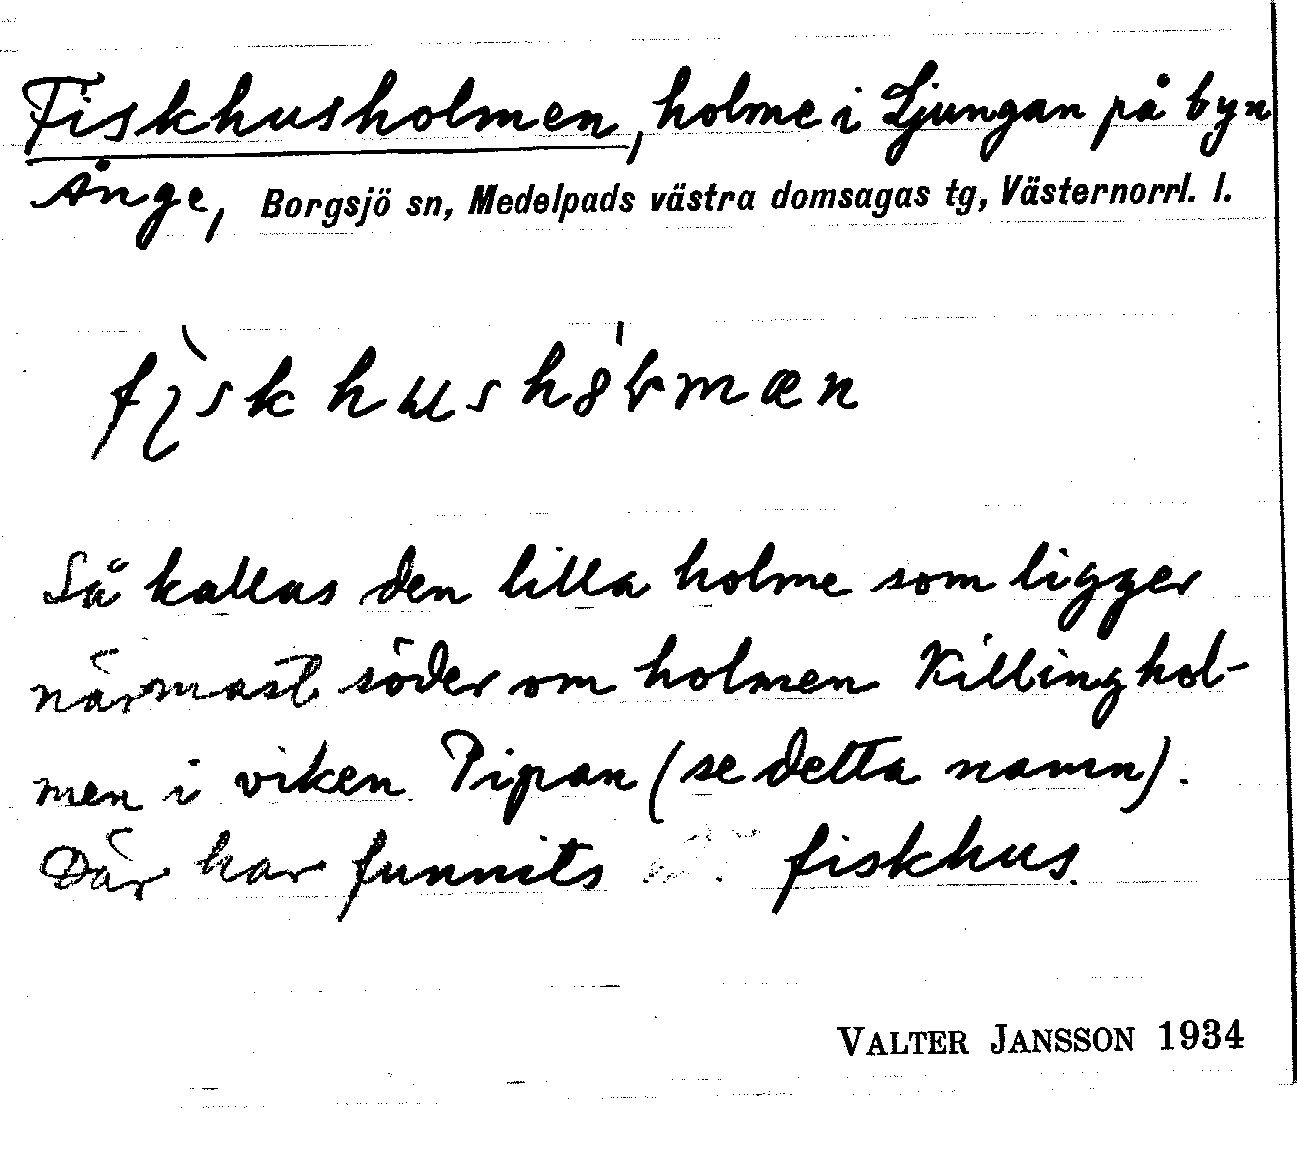 Fiskhusholmen, holme i Ljungan på byn
Ånge, Borgsjö sn, Medelpads västra domsagas tg, Västernorrl. l.
Så kallas den lilla holme som ligger
närmast söder om holmen Killinghol-
men i viken Pipan (se detta namn).
Där har funnits fiskhus.
VALTER JANSSON 1934